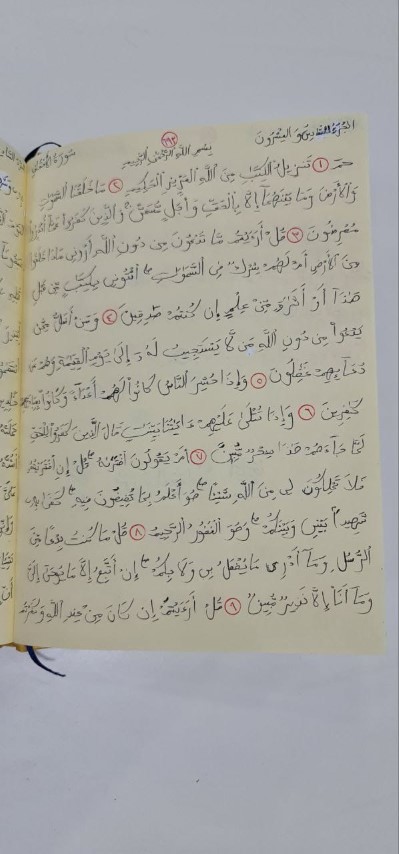 الجزء السادس والعشرون
٢٩٣
سورة الأحقاف
بسم الله الرحمن الرحيم
حمٓ ١ تَنزِيلُ الْكِتَٰبِ مِنَ اللَّهِ الْعَزِيزِ الْحَكِيمِ ٢ مَا خَلَقْنَا السَّمَٰوَٰتِ
وَالْأَرْضَ وَمَا بَيْنَهُمَآ إِلَّا بِالْحَقِّ وَأَجَلٍ مُّسَمًّى وَالَّذِينَ كَفَرُوا عَمَّآ أُنذِرُوا
مُعْرِضُونَ ٣ قُلْ أَرَءَيْتُم مَّا تَدْعُونَ مِن دُونِ اللَّهِ أَرُونِي مَاذَا خَلَقُوا
مِنَ الْأَرْضِ أَمْ لَهُمْ شِرْكٌ فِي السَّمَٰوَٰتِ ائْتُونِي بِكِتَٰبٍ مِّن قَبْلِ
هَٰذَآ أَوْ أَثَٰرَةٍ مِّنْ عِلْمٍ إِن كُنتُمْ صَٰدِقِينَ ٤ وَمَنْ أَضَلُّ مِمَّن
يَدْعُوا مِن دُونِ اللَّهِ مَن لَّا يَسْتَجِيبُ لَهُ إِلَىٰ يَوْمِ الْقِيَٰمَةِ وَهُمْ عَن
دُعَآئِهِمْ غَٰفِلُونَ ٥ وَإِذَا حُشِرَ النَّاسُ كَانُوا لَهُمْ أَعْدَآءً وَكَانُوا بِعِبَادَتِهِمْ
كَٰفِرِينَ ٦ وَإِذَا تُتْلَىٰ عَلَيْهِمْ ءَايَٰتُنَا بَيِّنَٰتٍ قَالَ الَّذِينَ كَفَرُوا لِلْحَقِّ
لَمَّا جَآءَهُمْ هَٰذَا سِحْرٌ مُّبِينٌ ٧ أَمْ يَقُولُونَ افْتَرَىٰهُ قُلْ إِنِ افْتَرَيْتُهُ
فَلَا تَمْلِكُونَ لِي مِنَ اللَّهِ شَيْئًا هُوَ أَعْلَمُ بِمَا تُفِيضُونَ فِيهِ كَفَىٰ بِهِ
شَهِيدًا بَيْنِي وَبَيْنَكُمْ وَهُوَ الْغَفُورُ الرَّحِيمُ ٨ قُلْ مَا كُنتُ بِدْعًا مِّنَ
الرُّسُلِ وَمَآ أَدْرِي مَا يُفْعَلُ بِي وَلَا بِكُمْ إِنْ أَتَّبِعُ إِلَّا مَا يُوحَىٰ إِلَيَّ
وَمَآ أَنَا إِلَّا نَذِيرٌ مُّبِينٌ ٩ قُلْ أَرَءَيْتُمْ إِن كَانَ مِنْ عِندِ اللَّهِ وَكَفَرْتُم